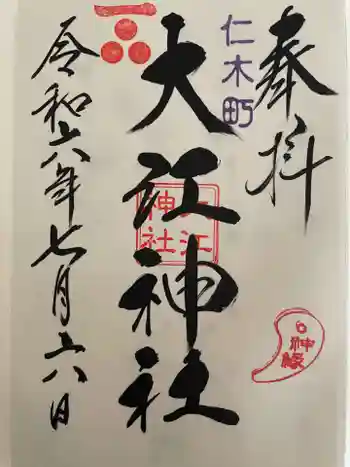 奉拝
仁木町
大江神社
大江
神社
令和六年七月六日
神縁